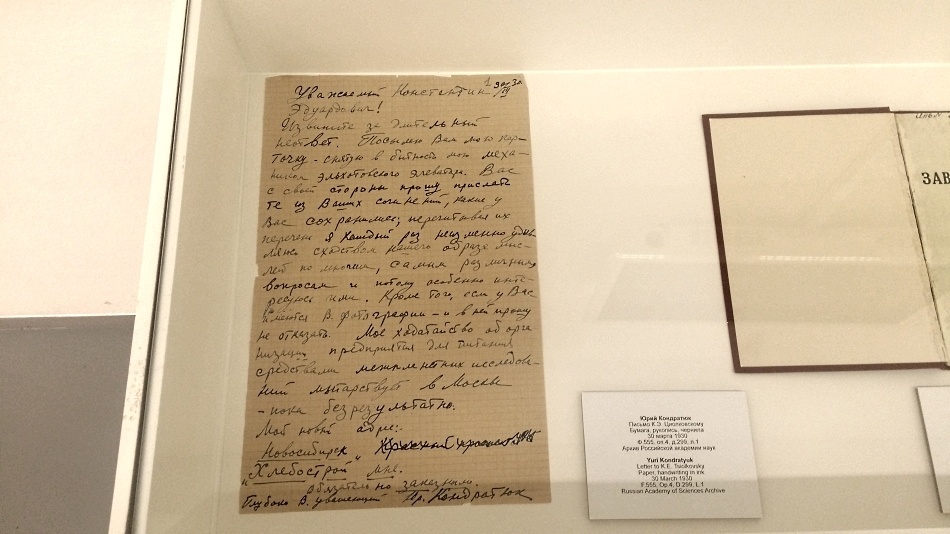 30/III 30.
Уважаемый Константин
Эдуардович!
Извините за длительный
неответ. Посылаю Вам мою кар-
точку - снятую в бытность мою меха-
ником эльхотовского элеватора. Вас
с своей стороны прошу прислать
те из Ваших сочинений, какие у
Вас сохранились; перечитывая их
перечень я каждый раз неизменно удив
ляюсь сходством нашего образа мыс-
лей по многим, самым различным
вопросам и потому особенно инте-
ресуюсь ими. Кроме того, если у Вас
имеются В. фотографии - и в ней прошу
не отказать. Мое ходатайство об орга-
низации предприятия для питания
средствами межпланетных исследова-
ний мытарствует в Москве
- пока безрезультатно.
Мой новый адрес:-
Новосибирск,
"Хлебострой" мне.
обязательно заказным.
Глубоко В. уважающий Юр. Кондратюк
ЗАВ
Юрий Кондратюк
Письмо К.Э. Циолковскому
Бумага, рукопись, чернила
30 марта 1930
Ф.555, оп.4, д.299, л.1
Архив Российской академии наук
Yuri Kondratyuk
Letter to K.E. Tsiolkovsky
Paper, handwriting in ink
30 March 1930
F.555, Op.4, D.299, L.1
Russian Academy of Sciences Archive